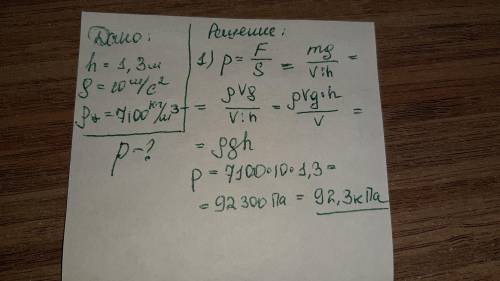 Дано:
h = 1,3м
g = 10 м/с²
ρж = 7100 кг/м³
p - ?
Решение:
1) p = F/S = mg/V:h =
= ρVg/V:h = ρVg·h/V =
= ρgh
p = 7100·10·1,3 =
= 92300 Па = 92,3 кПа